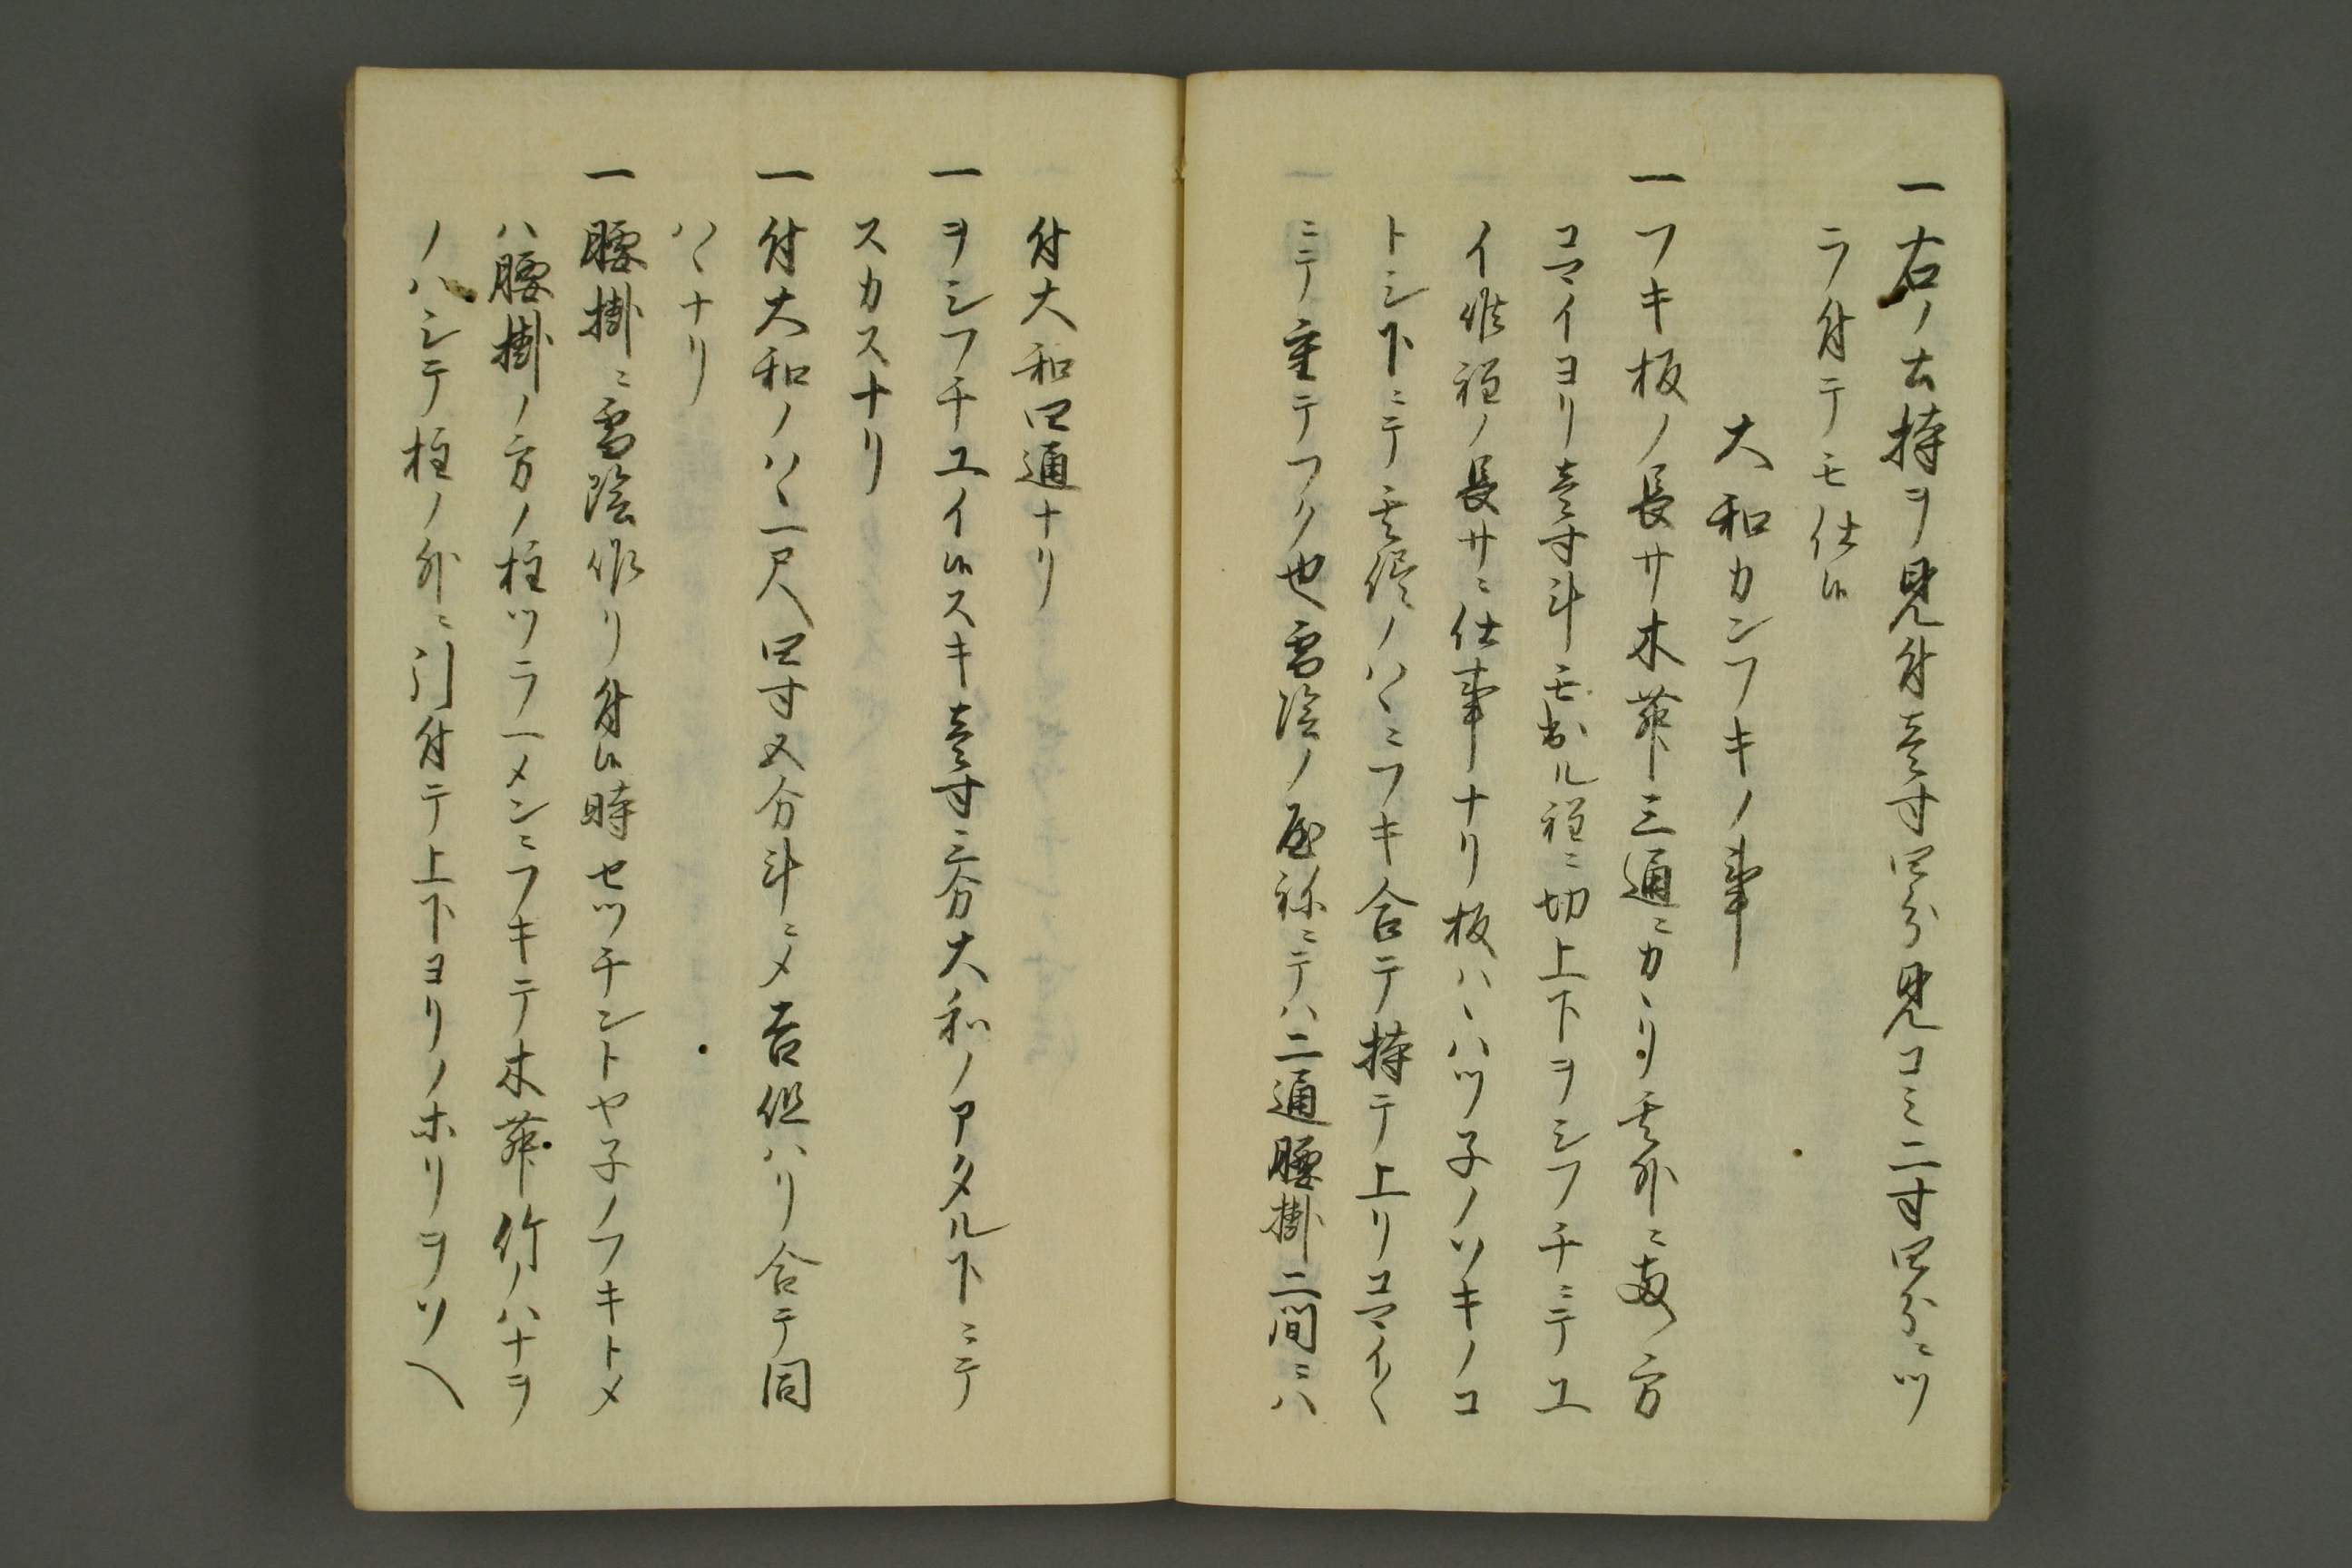 一右ノ土持ヲ見付壹寸四分見コミ二寸四分ニツ
ラ付テモ仕候
大和カンフキノ事
一フキ板ノ長サ木舞三通ニカヽリ其外ニ両方
コマイヨリ壹寸斗モ出ル程ニ切上下ヲシフチニテユ
イ候程ノ長サニ仕事ナリ板ハヽハツ子ノソキノコ
トシ下ニテ其侭ノハヽニフキ合テ持テ上リコマイ〱
ニテ重テフク也雪隠ノ屋祢ニテハ二通腰掛二間ニハ
付大和四通ナリ
一ヲシフチユイ候スキ壹寸三分大和ノアタル下ニテ
スカスナリ
一付大和ノハヽ一尺四寸五分斗ニメ吉但ハリ合テ同
ハヽナリ
一腰掛ニ雪隠作リ付候時セツチントヤ子ノフキトメ
ハ腰掛ノ方ノ柱ツラ一メンニフキテ木舞竹ノハナヲ
ノハシテ柱ノ外ニ引付テ上下ヨリノホリヲソヘ